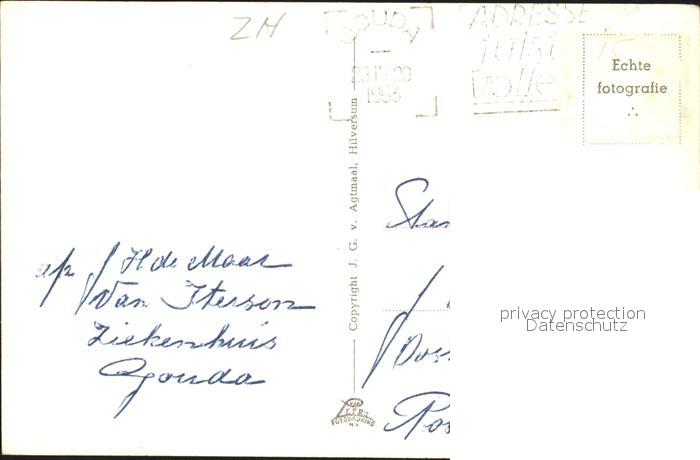 ZH
GOUDA
1953
ADRESSE
juist
volle
Echte
fotografie
Copyright J. G. v. Agtmaal, Hilversum
H de Maar
Van Iterson
Ziekenhuis
Gouda
privacy protection
Datenschutz